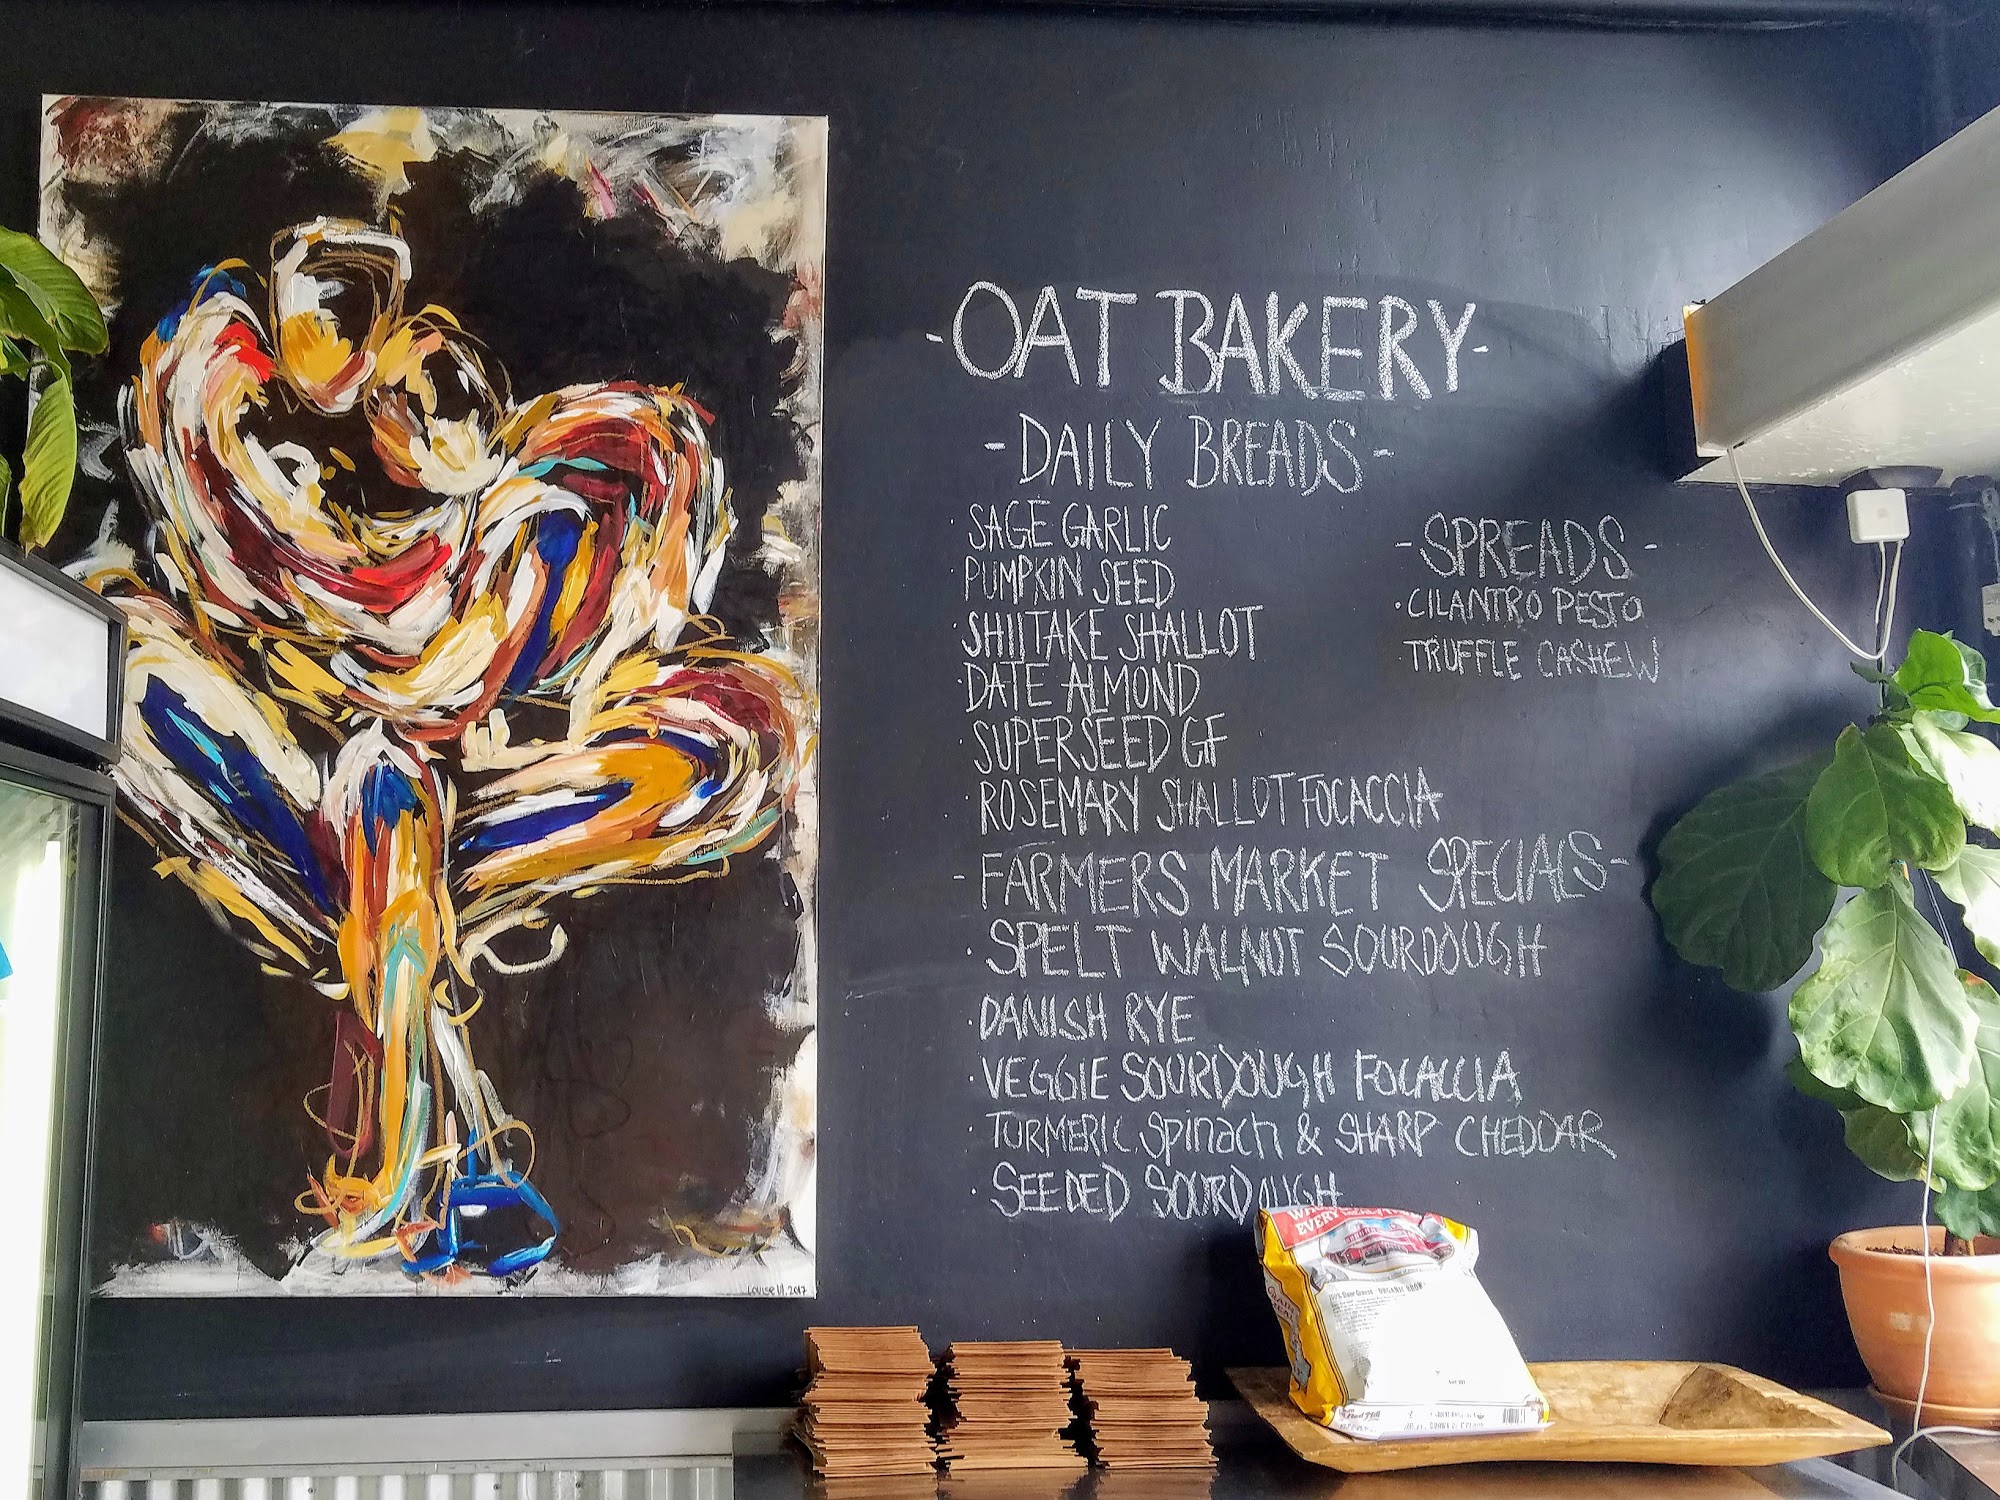 -OAT BAKERY-
-DAILY BREADS-
· SAGE GARLIC
· PUMPKIN SEED
· SHIITAKE SHALLOT
· DATE ALMOND
· SUPERSEED GF
· ROSEMARY SHALLOT FOCACCIA
-SPREADS-
· CILANTRO PESTO
· TRUFFLE CASHEW
-FARMERS MARKET SPECIALS-
· SPELT WALNUT SOURDOUGH
· DANISH RYE
· VEGGIE SOURDOUGH FOCACCIA
· TURMERIC, Spinach & SHARP CHEDDAR
· SEEDED SOURDOUGH
EVERY
Red Mill
2017